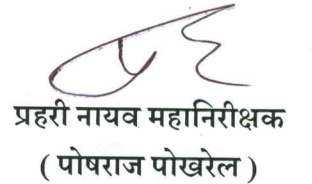 प्रहरी नायव महानिरीक्षक
( पोषराज पोखरेल )